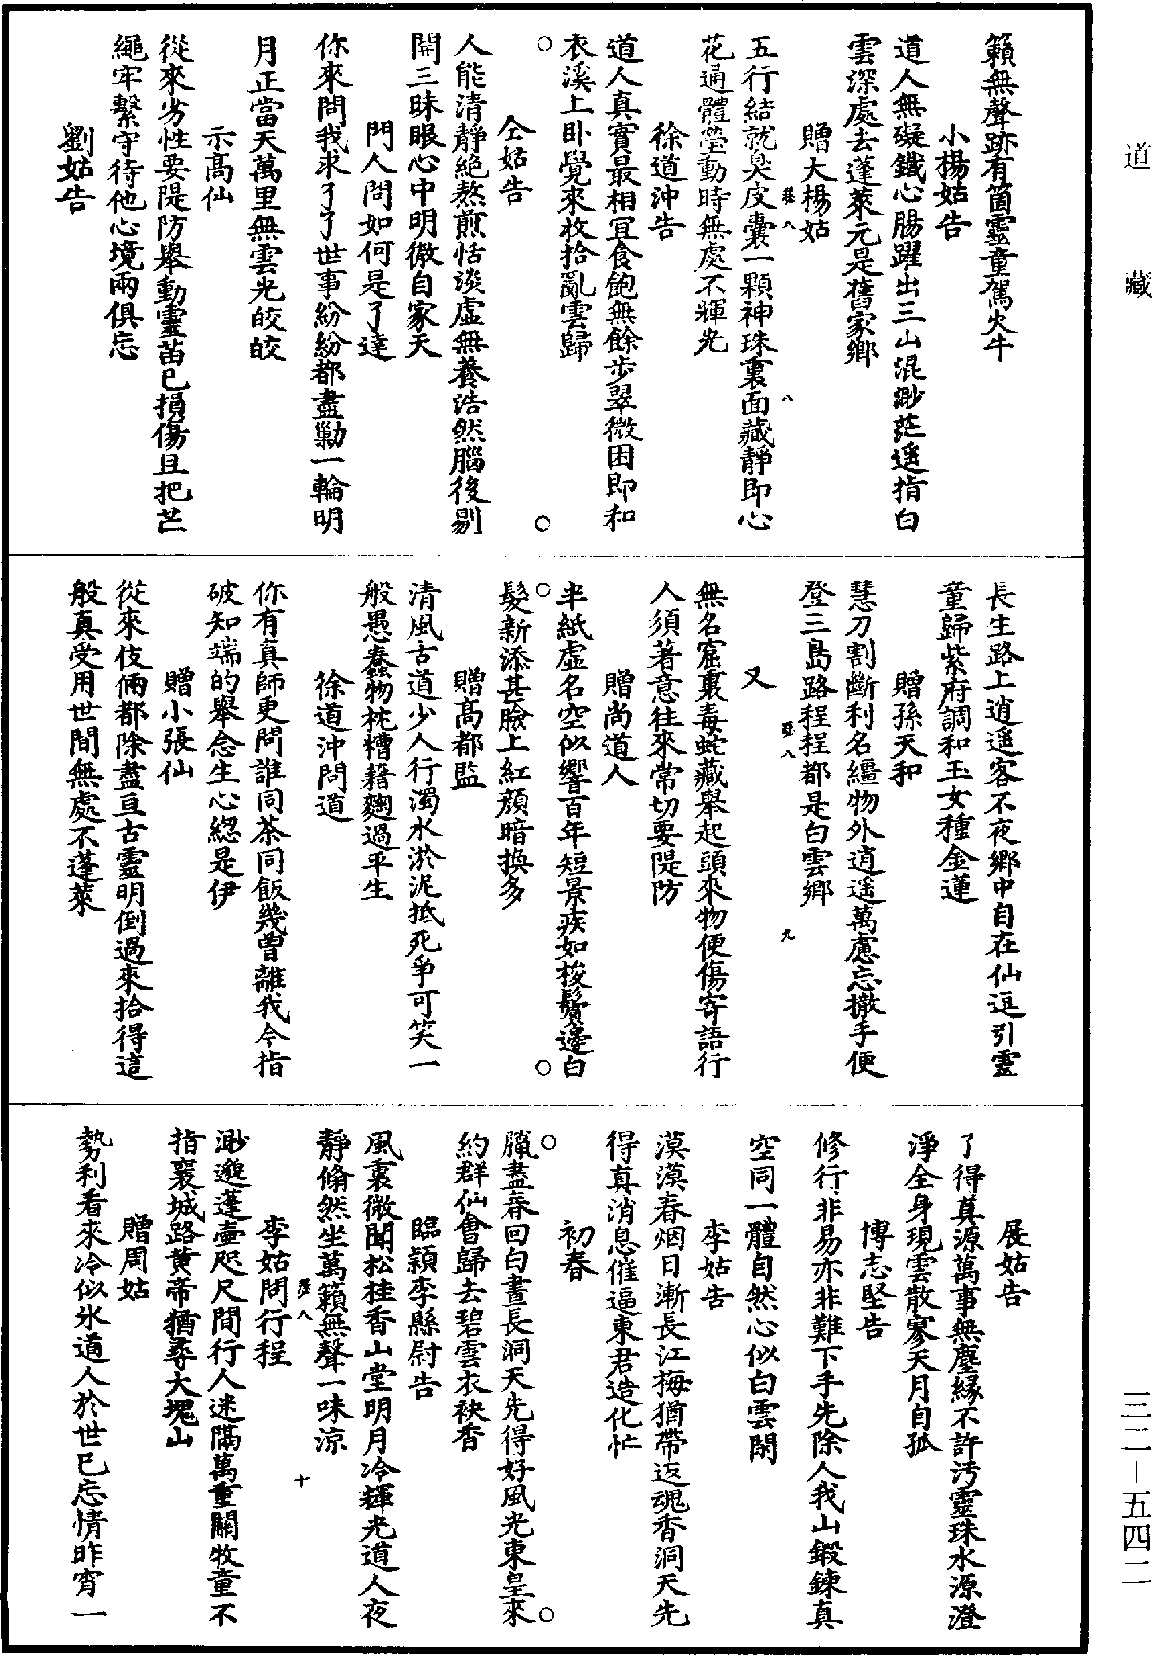 道藏
籟無聲跡有箇靈童駕火牛
小楊姑告
道人無礙鐵心腸躍出三山混渺茫遥指白
雲深處去蓬萊元是舊家鄉
贈大楊姑
五行結就臭皮囊一顆神珠裏面藏靜即心
花通體瑩動時無處不輝光
徐道沖告
道人真實最相宜食飽無餘步翠微困即和
衣溪上卧覺來收拾亂雲歸
仝姑告
人能清靜絕熬煎恬淡虛無養浩然腦後剔
開三昧眼心中明徹自家天
門人問如何是了達
你來問我求了了世事紛紛都盡勦一輪明
月正當天萬里無雲光皎皎
示高仙
從來劣性要隄防舉動靈苗已損傷且把芒
繩牢繫守待他心境兩俱忘
劉姑告
長生路上逍遥客不夜鄉中自在仙逗引靈
童歸紫府調和玉女種金蓮
贈孫天和
慧刀割斷利名韁物外逍遥萬慮忘撒手便
登三島路程程都是白雲鄉
又
無名窟裏毒蛇藏舉起頭來物便傷寄語行
人須著意往來常切要隄防
贈尚道人
半紙虛名空似響百年短景疾如梭鬢邊白
髮新添甚臉上紅顔暗換多
贈高都監
清風古道少人行濁水淤泥抵死爭可笑一
般愚蠢物枕糟藉麴過平生
徐道沖問道
你有真師更問誰同茶同飯幾曾離我今指
破知端的舉念生心總是伊
贈小張仙
從來伎倆都除盡亘古靈明倒過來拾得這
般真受用世間無處不蓬萊
展姑告
了得真源萬事無塵緣不許污靈珠水源澄
淨全身現雲散寥天月自孤
博志堅告
修行非易亦非難下手先除人我山鍛鍊真
空同一體自然心似白雲閑
李姑告
漠漠春烟日漸長江梅猶帶返魂香洞天先
得真消息催逼東君造化忙
初春
臘盡春回白晝長洞天先得好風光東皇來
約群仙會歸去碧雲衣袂香
臨潁李縣尉告
風裏微聞松桂香山堂明月冷輝光道人夜
靜翛然坐萬籟無聲一味涼
李姑問行程
渺邈蓬壷咫尺間行人迷隔萬重關牧童不
指襄城路黃帝猶尋大塊山
贈周姑
勢利看來冷似氷道人於世已忘情昨宵一
三二－五四二